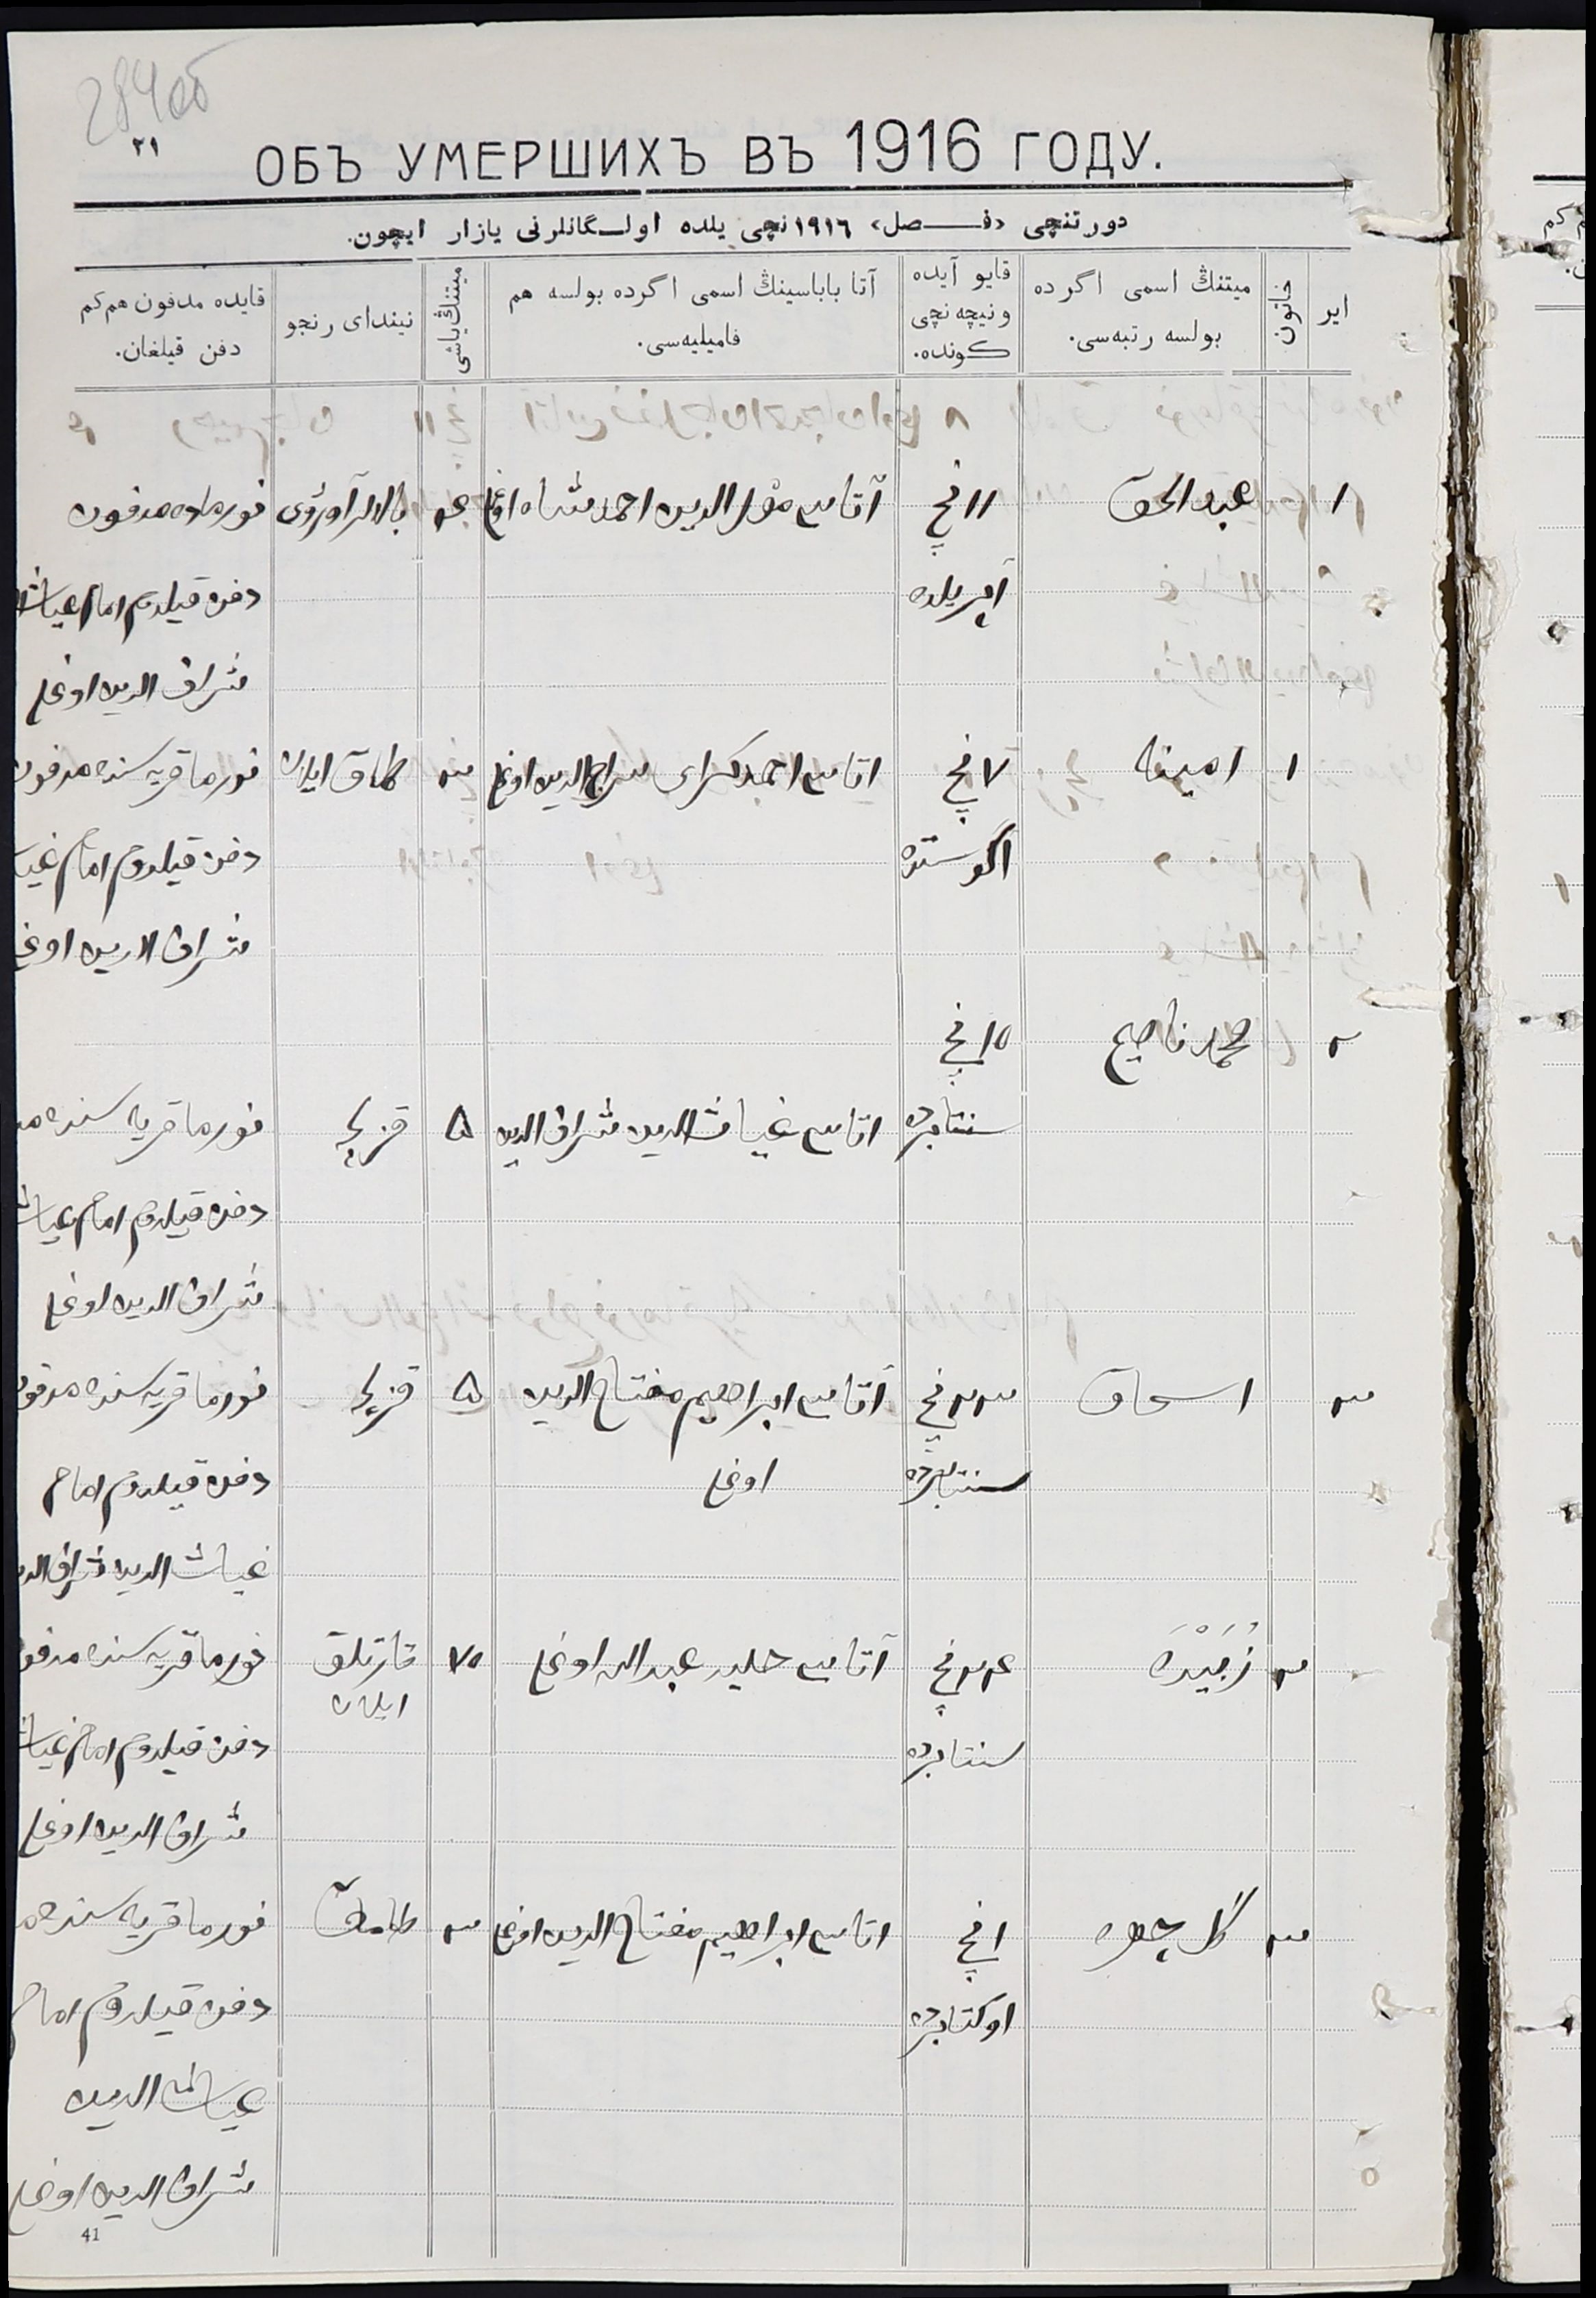 284об
٢١
ОБЪ УМЕРШИХЪ ВЪ 1916 ГОДУ.
دورتنچی «فـــصل» ١٩١٦نچی یلده اولـگانلرنی یازار ایچون.
ایر
خاتون
میتنڭ اسمی اگرده
بولسه رتبه‌سی.
قایو آیده
ونیچه نچی
کونده.
آتا باباسینڭ اسمی اگرده بولسه هم
فامیلیه‌سی.
میتنڭ یاشی
نیندای رنجو
قایده مدفون هم کم
دفن قیلغان.
١ عبدالحق ١١نچی آتاسی احمدشاه اوغلی ٤ بالالر آوروی نورماده مدفون
آپریلده دفن قیلدوم امام غیاث
شراف الدین اوغلی
١ امینه ٧نچی اتاسی احمدکرای سراج الدین اوغلی ٣ طماق ایلان نورما قریه سنده مدفون
آگوستده دفن قیلدوم امام غیا
شراف الدین اوغ
٢ محمد ناصح ١٥نچی
سنتابرده اتاسی غیاث الدین شراف الدین ٥ قزلچه نورما قریه سنده مد
دفن قیلدوم امام غیاث
شراف الدین اوغلی
٣ اسحاق ٢٣نچی آتاسی ابراهیم مفتاح الدین ٥ قزلچه نورما قریه سنده مدفون
سنتابرده اوغلی دفن قیلدوم امام
غیاث الدین شراف الدین
٢ زُبَيْدَه ٢٤نچی آتاسی عبدالله اوغلی ٧٠ قارتلق نورما قریه سنده مدفو
ایلان
سنتابرده دفن قیلدوم امام غیاث
شراف الدین اوغلی
٣ گل چهره ١نچی اتاسی ابراهیم مفتاح الدین اوغلی ٣ طاماق نورما قریه سنده م
اوکتابرده دفن قیلدوم امام
غیاث الدین
شراف الدین اوغلی
41